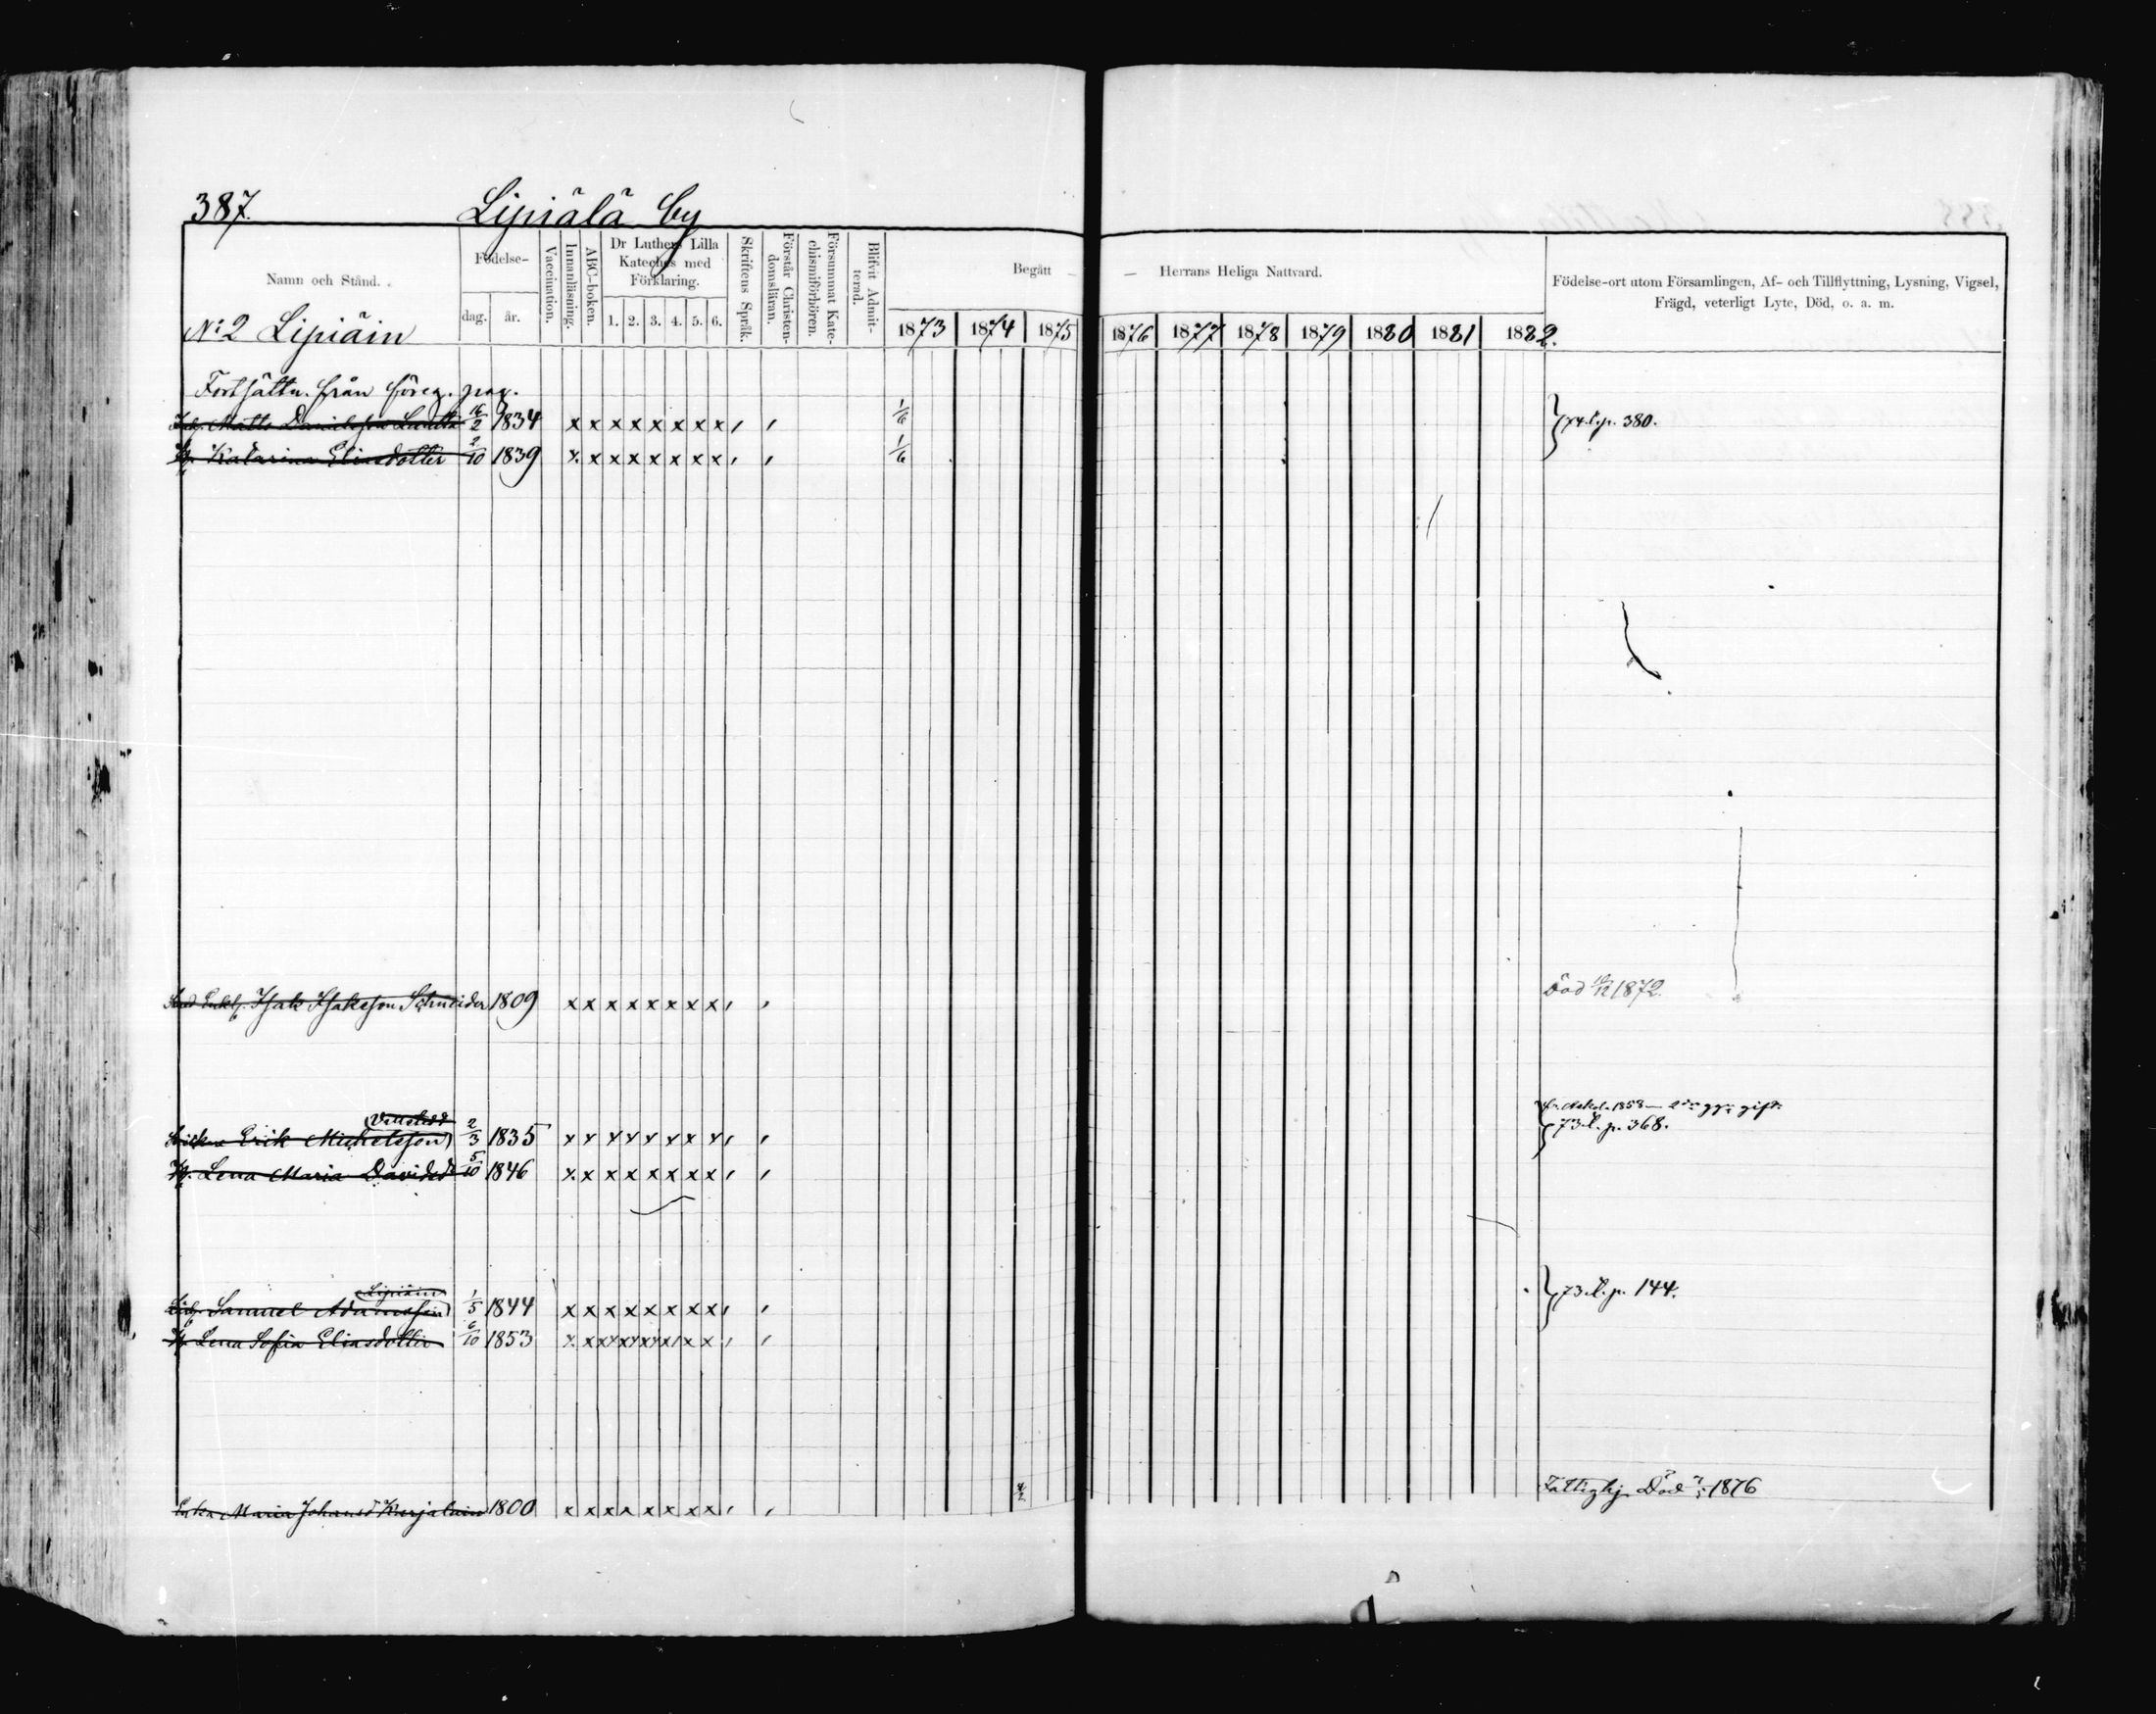 387. Lipiälä by
Namn och Stånd.
Födelse-
dag. år.
Vaccination.
Innanläsning.
ABC-boken.
Dr Luthers Lilla
Kateches med
Förklaring.
1. 2. 3. 4. 5. 6.
Skriftens Språk.
Förstår Christen-
domsläran.
Försummat Kate-
chismiförhören.
Blifvit Admit-
terad.
Begått — — Herrans Heliga Nattvard.
1873 1874 1875 1876 1877 1878 1879 1880 1881 1882.
Födelse-ort utom Församlingen, Af- och Tillflyttning, Lysning, Vigsel,
Frägd, veterligt Lyte, Död, o. a. m.
No 2 Lipiäin
Fortsättn. från föreg. pag.
Matts Danielsson 16/2 1834 x x x x x x x x 1/6 74. l. p. 380.
H. Katarina Eliasdotter 2/10 1839 x x x x x x x x 1/6
Enkl. Isak Isaksson Schneider 1809 x x x x x x x x Död 1872.
1858 gift
Erik Michelsson 2/3 1835 x x x x x x x x 73. l. p. 368.
H. Lena Maria Davidsd 5/10 1846 x x x x x x x x
Lipiäin
Samuel Adamsson 1/5 1844 x x x x x x x x 73. l. p. 144.
H. Lena Sofia Eliasdotter 6/10 1853
Fattighj. Död 1876
Enka Maria Johansd Karjalain 1800 x x x x x x x x